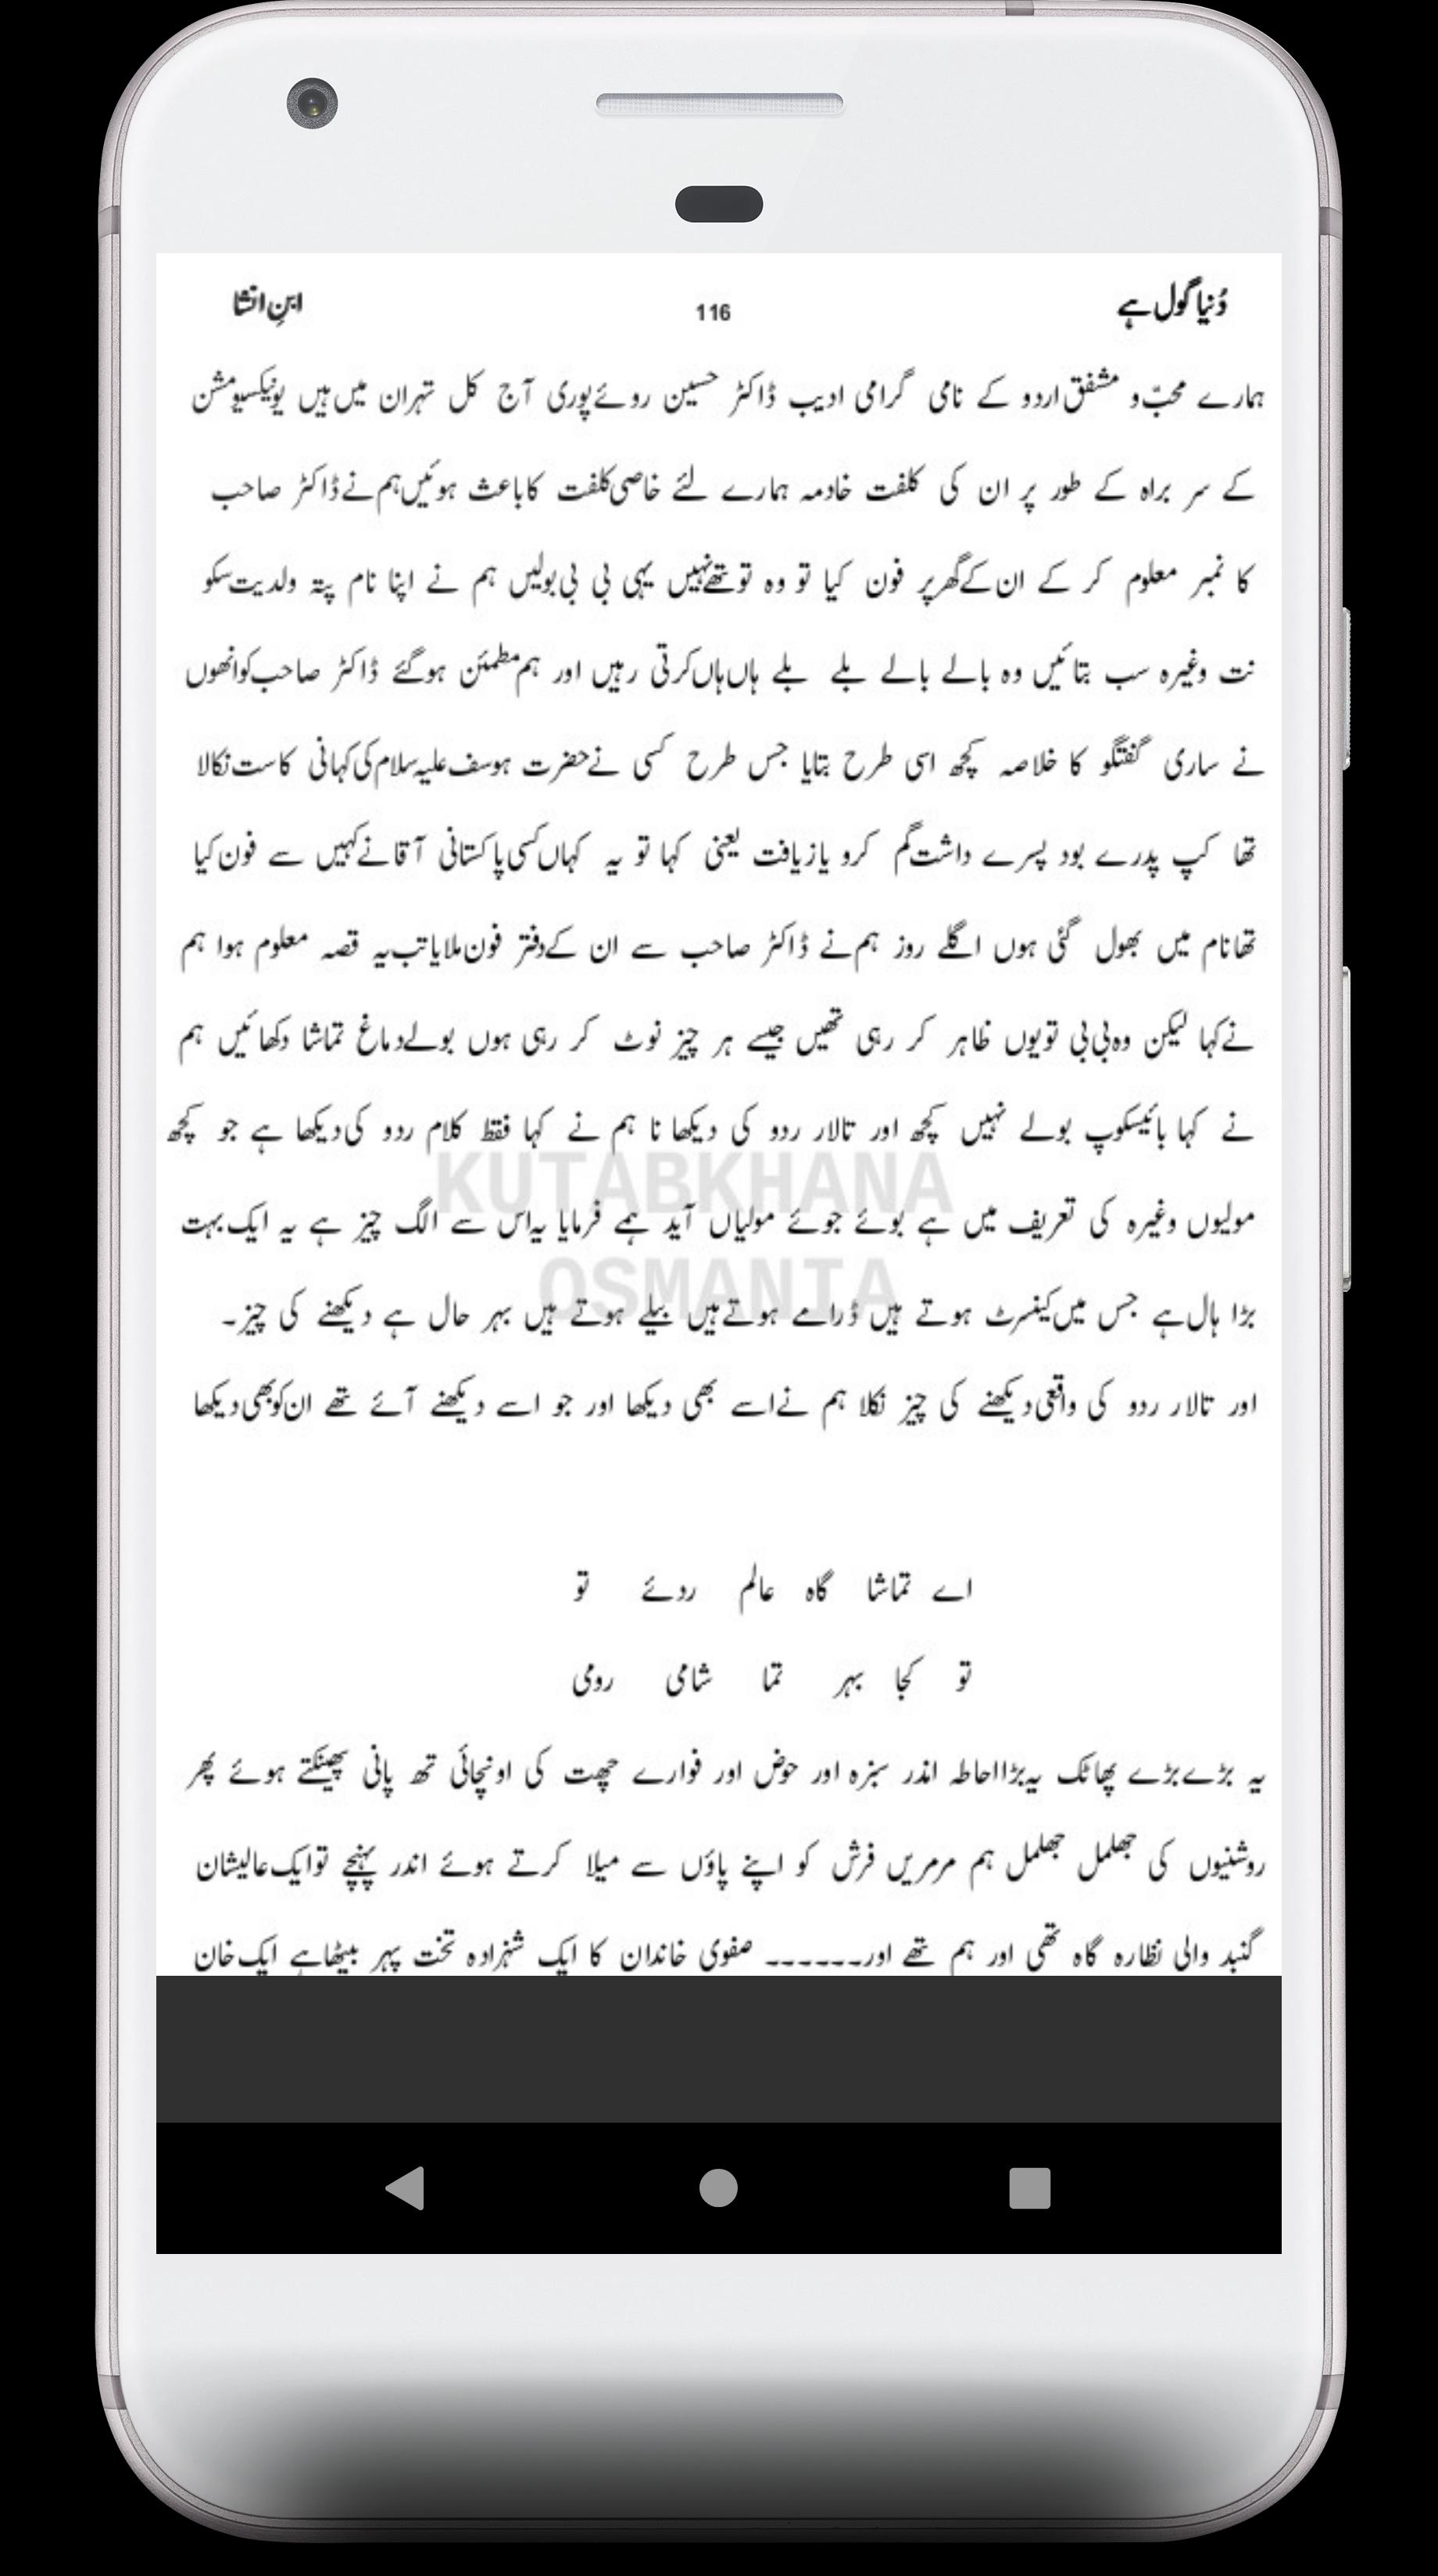 دُنیا گول ہے 116 ابنِ انشا
ہمارے محبّ و مشفق اردو کے نامی گرامی ادیب ڈاکٹر حسین روئے پوری آج کل تہران میں ہیں یونیکسیو مشن
کے سر براہ کے طور پر ان کی کلفت خادمہ ہمارے لئے خاصی کلفت کا باعث ہوئیں ہم نے ڈاکٹر صاحب
کا نمبر معلوم کر کے ان کے گھر پر فون کیا تو وہ تو تھے نہیں یہی بی بی بولیں ہم نے اپنا نام پتہ ولدیت سکو
نت وغیرہ سب بتائیں وہ بالے بالے بلے بلے ہاں ہاں کرتی رہیں اور ہم مطمئن ہو گئے ڈاکٹر صاحب کو انھوں
نے ساری گفتگو کا خلاصہ کچھ اسی طرح بتایا جس طرح کسی نے حضرت ہوسف علیہ سلام کی کہانی کا ست نکالا
تھا کپ پدرے بود پسرے داشت گم کرو یازیافت یعنی کہا تو یہ کہاں کسی پاکستانی آقا نے کہیں سے فون کیا
تھا نام میں بھول گئی ہوں اگلے روز ہم نے ڈاکٹر صاحب سے ان کے دفتر فون ملایا تب یہ قصہ معلوم ہوا ہم
نے کہا لیکن وہ بی بی تو یوں ظاہر کر رہی تھیں جیسے ہر چیز نوٹ کر رہی ہوں بولے دماغ تماشا دکھائیں ہم
نے کہا بائیسکوپ بولے نہیں کچھ اور تالار ردو کی دیکھا نا ہم نے کہا فقط کلام ردو کی دیکھا ہے جو کچھ
مولیوں وغیرہ کی تعریف میں ہے بوئے جوئے مولیاں آید ہمے فرمایا یہ اس سے الگ چیز ہے یہ ایک بہت
بڑا ہال ہے جس میں کینسرٹ ہوتے ہیں ڈرامے ہوتے ہیں بیلے ہوتے ہیں بہر حال ہے دیکھنے کی چیز۔
اور تالار ردو کی واقعی دیکھنے کی چیز نکلا ہم نے اسے بھی دیکھا اور جو اسے دیکھنے آئے تھے ان کو بھی دیکھا
KUTABKHANA
OSMANIA
اے تماشا گاہ عالم روئے تو
تو کجا بہر تما شامی رومی
یہ بڑے بڑے پھاٹک یہ بڑا احاطہ انذر سبزہ اور حوض اور فوارے چھت کی اونچائی تھ پانی پھینکتے ہوئے پھر
روشنیوں کی جھلمل جھلمل ہم مرمریں فرش کو اپنے پاؤں سے میلا کرتے ہوئے اندر پہنچے تو ایک عالیشان
گنبد والی نظارہ گاہ تھی اور ہم تھے اور۔۔۔۔۔۔ صفوی خاندان کا ایک شہزادہ تخت پہر بیٹھا ہے ایک خان